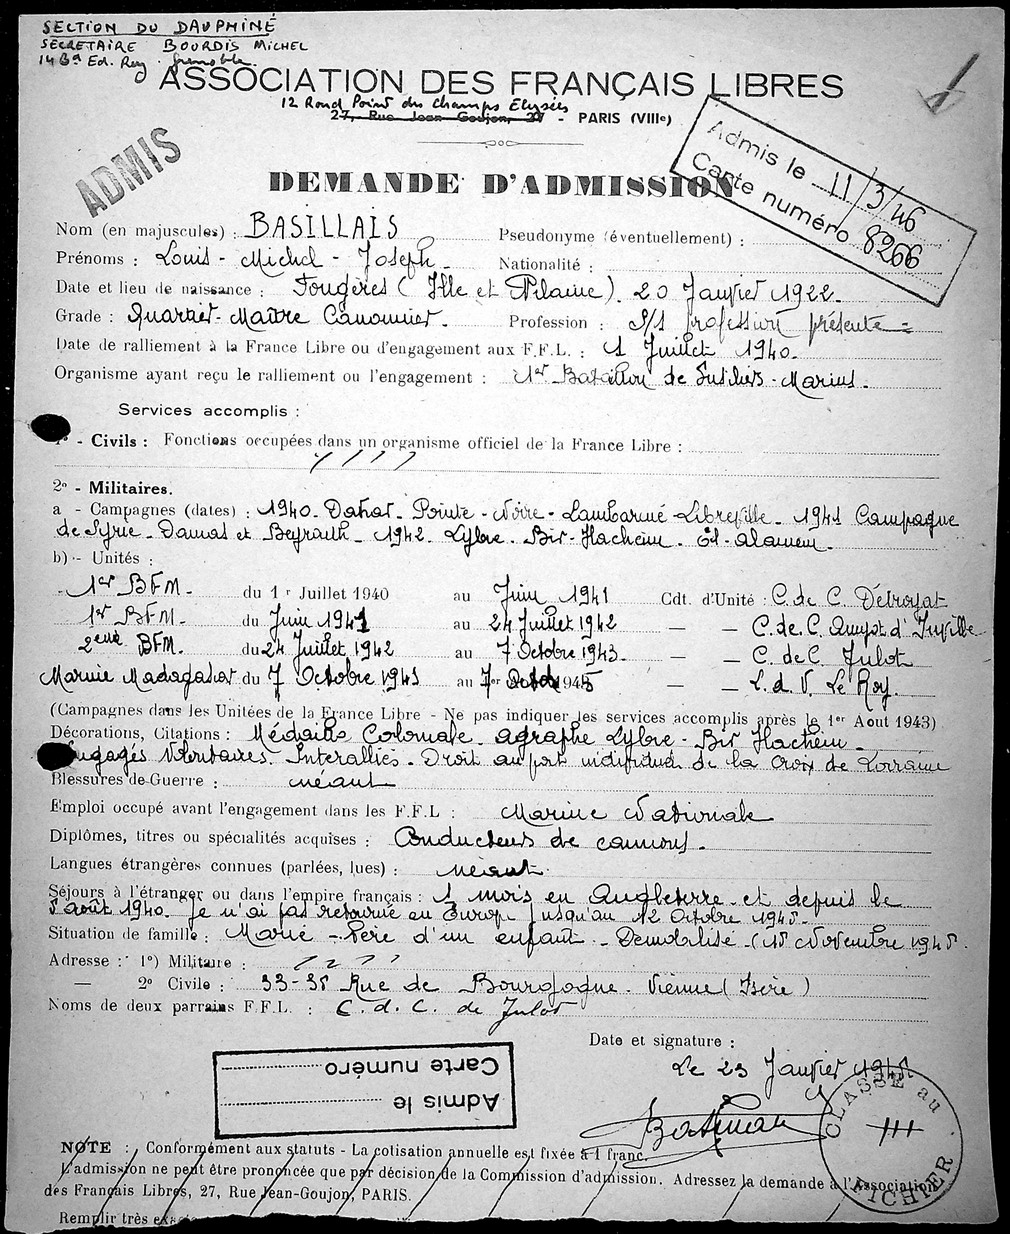 SECTION DU DAUPHINÉ
SECRETAIRE BOURDIS MICHEL
14 Bd Ed. Rey. Grenoble.
ASSOCIATION DES FRANÇAIS LIBRES
12 Rond Point des Champs Elysées
27, Rue Jean Goujon, 27 - PARIS (VIIIe)
ADMIS
Admis le 11/3/46
Carte numéro 8266
DEMANDE D'ADMISSION
Nom (en majuscules) : BASILLAIS Pseudonyme (éventuellement) :
Prénoms : Louis - Michel - Joseph Nationalité :
Date et lieu de naissance : Fougères (Ille et Vilaine). 20 Janvier 1922.
Grade : Quartier-Maître Canonnier. Profession : S/S profession présente =
Date de ralliement à la France Libre ou d'engagement aux F.F.L. : 1 Juillet 1940.
Organisme ayant reçu le ralliement ou l'engagement : 1er Bataillon de Fusiliers-Marins.
Services accomplis :
1º - Civils : Fonctions occupées dans un organisme officiel de la France Libre :
2º - Militaires.
a - Campagnes (dates) : 1940. Dakar - Pointe-Noire - Lambaréné - Libreville - 1941 Campagne
de Syrie - Damas et Beyrouth - 1942. Lybie. Bir-Hacheim. El-Alamein.
b) - Unités :
- 1er BFM. du 1er Juillet 1940 au Juin 1941 Cdt. d'Unité : C. de C. Détroyat
1er BFM. du Juin 1941 au 24 Juillet 1942 — — C. de C. Amyot d'Inville
2eme BFM. du 24 Juillet 1942 au 7 Octobre 1943. — — C. de C. Julot
Marine Madagascar du 7 Octobre 1943 au 1er 1945 — — L. d. V. Le Roy.
(Campagnes dans les Unitées de la France Libre - Ne pas indiquer les services accomplis après le 1er Aout 1943)
Décorations, Citations : Médaille Coloniale. agraphe Lybie - Bir Hacheim -
Engagés Volontaires. Interalliés - Droit au port individuel de la Croix de Lorraine
Blessures de Guerre : néant
Emploi occupé avant l'engagement dans les F.F.L : Marine Nationale
Diplômes, titres ou spécialités acquises : Conducteurs de camions.
Langues étrangères connues (parlées, lues) : néant.
Séjours à l'étranger ou dans l'empire français : 1 mois en Angleterre et depuis le
août 1940. Je n'ai pas retourné en Europe jusqu'au 12 Octobre 1945.
Situation de famille : Marié - Père d'un enfant - Demobilisé - (15 Novembre 1945.
Adresse : 1º) Militaire :
— 2º Civile : 33-35 Rue de Bourgogne. Vienne (Isère)
Noms de deux parrains F.F.L. : C. d. C. de Julot
Date et signature :
Le 23 Janvier
Carte numéro
Admis le
CLASSÉ au
III
FICHIER
NOTE : Conformément aux statuts - La cotisation annuelle est fixée à 1 franc.
L'admission ne peut être prononcée que par décision de la Commission d'admission. Adressez la demande à l'Association
des Français Libres, 27, Rue Jean-Goujon, PARIS.
Remplir très